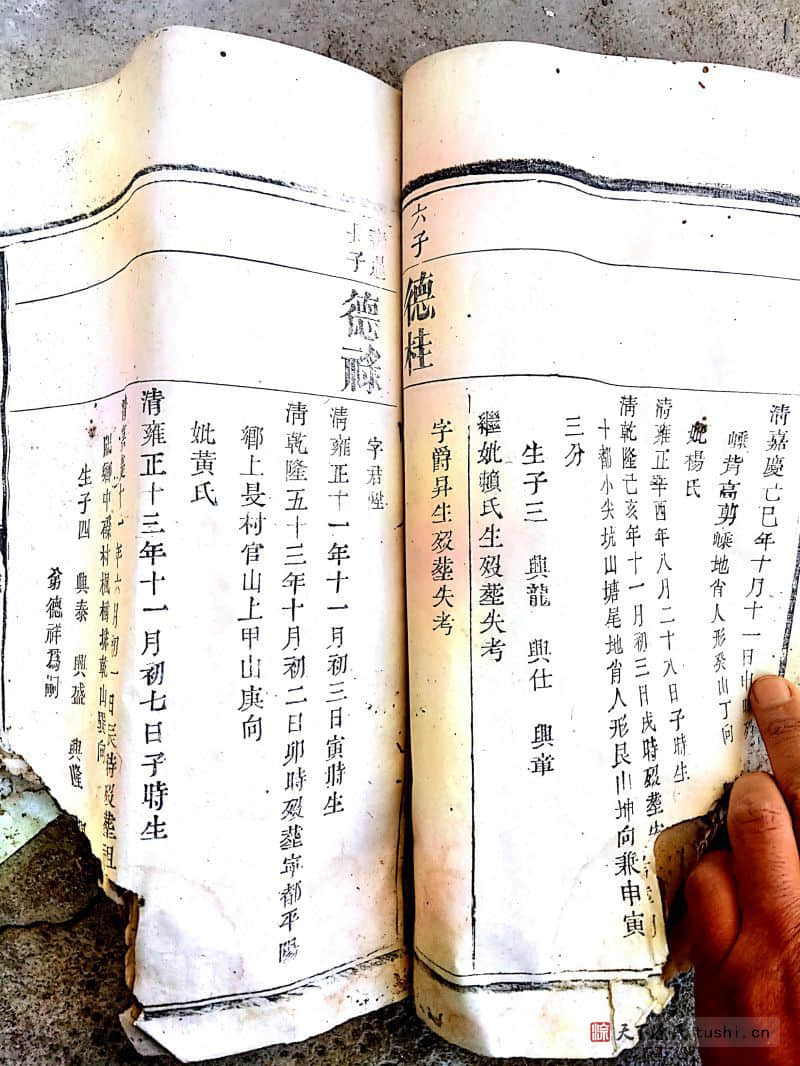 清嘉慶亡巳年十月十一日
嵊背高剪嵊地肖人形癸山丁向
妣楊氏
清雍正辛酉年八月二十八日子時生
清乾隆己亥年十一月初三日戌時歿葬
十都小尖坑山塘尾地肖人形艮山坤向兼申寅
三分
生子三 興龍 興仕 興章
繼妣賴氏生歿葬失考
六子
德桂
字爵昇生歿葬失考
子
德祿
字君
清雍正十一年十一月初三日寅時生
清乾隆五十三年十月初二日卯時歿葬寧都平陽
鄉上長村官山上甲山庚向
妣黃氏
清雍正十三年十一月初七日子時生
年六月初一日辰時歿葬祖
鄉中村楓樹排乾山巽向
生子四 興泰 興盛 興隆
德祥為嗣
tushi.cn